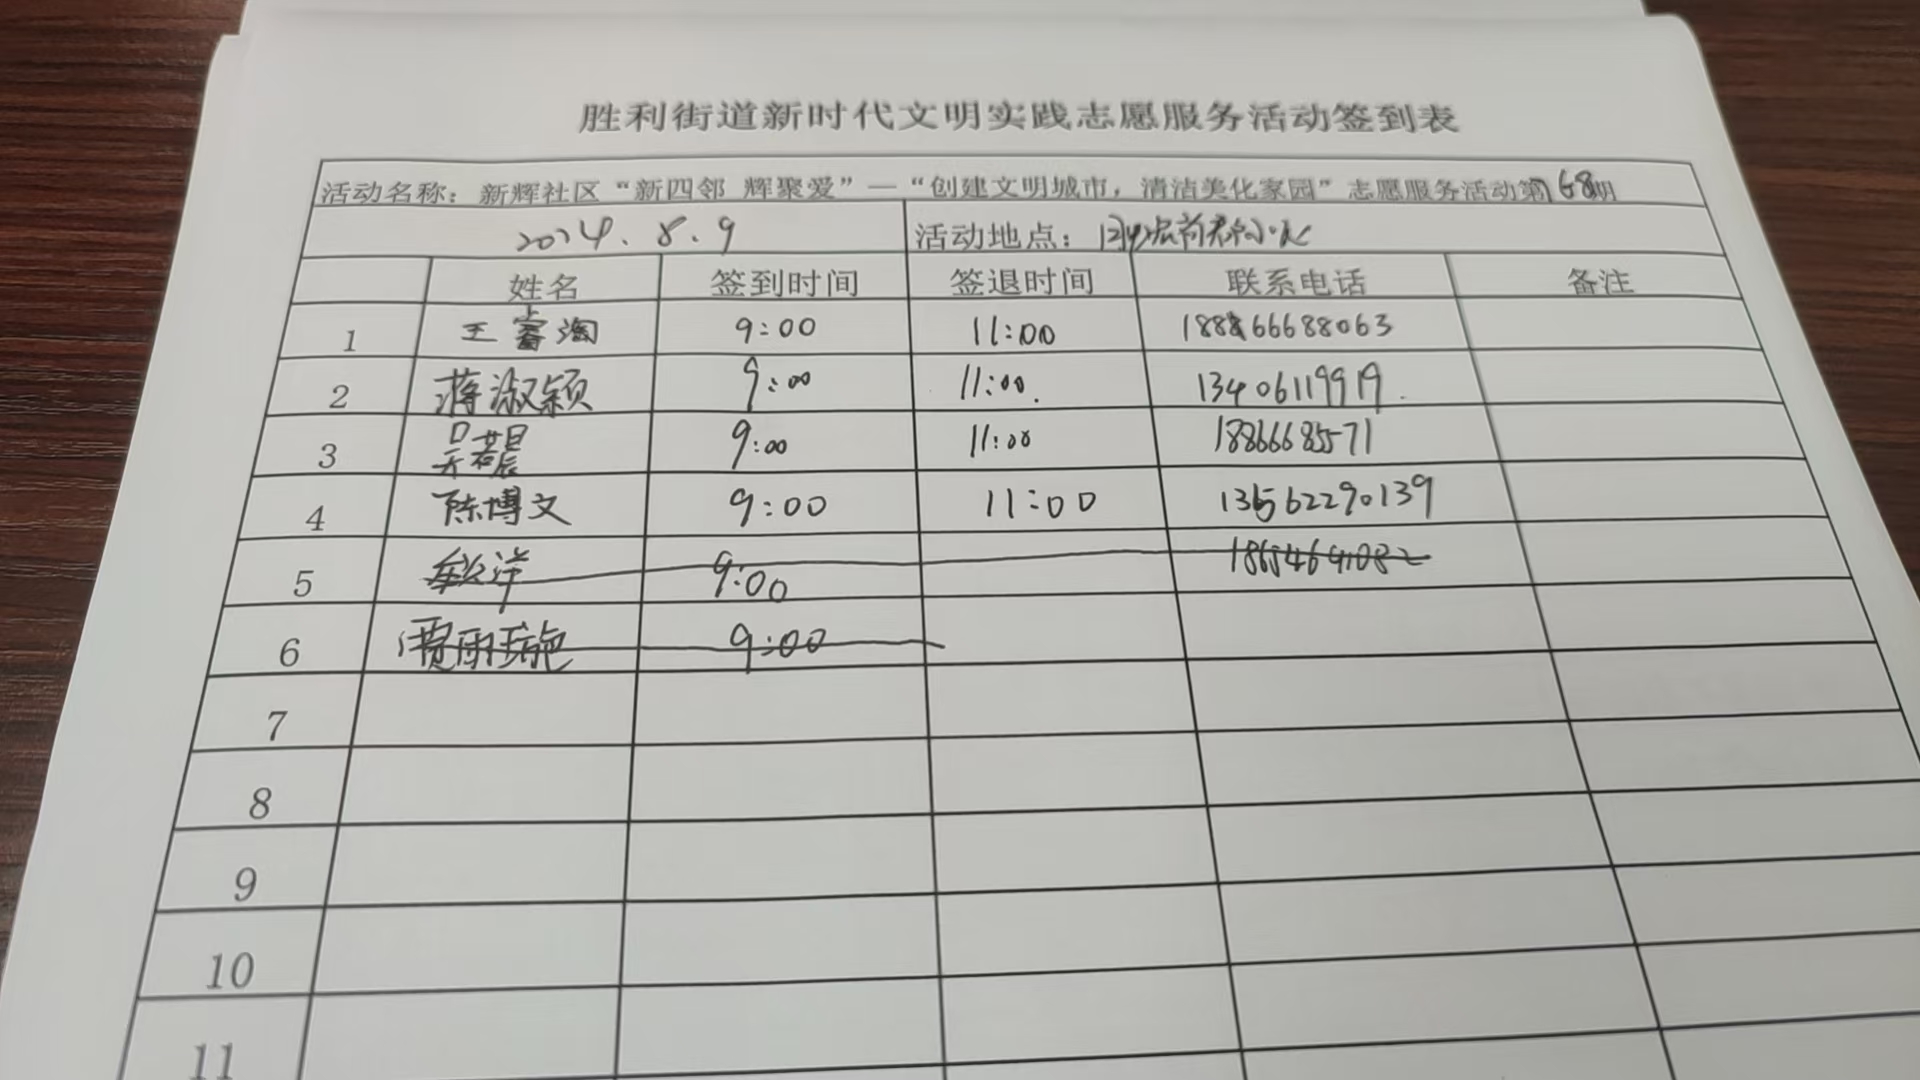 胜利街道新时代文明实践志愿服务活动签到表
活动名称：新辉社区“新四邻 辉聚爱”—“创建文明城市，清洁美化家园”志愿服务活动第168期
2024.8.9 活动地点：
姓名 签到时间 签退时间 联系电话 备注
1 王睿淘 9:00 11:00
2 蒋淑颖 9:00 11:00. 13406119919.
3 吴若晨 9:00 11:00 18866685571
4 陈博文 9:00 11:00 136562290139
5 9:00
6 贾雨 9:00
7
8
9
10
11